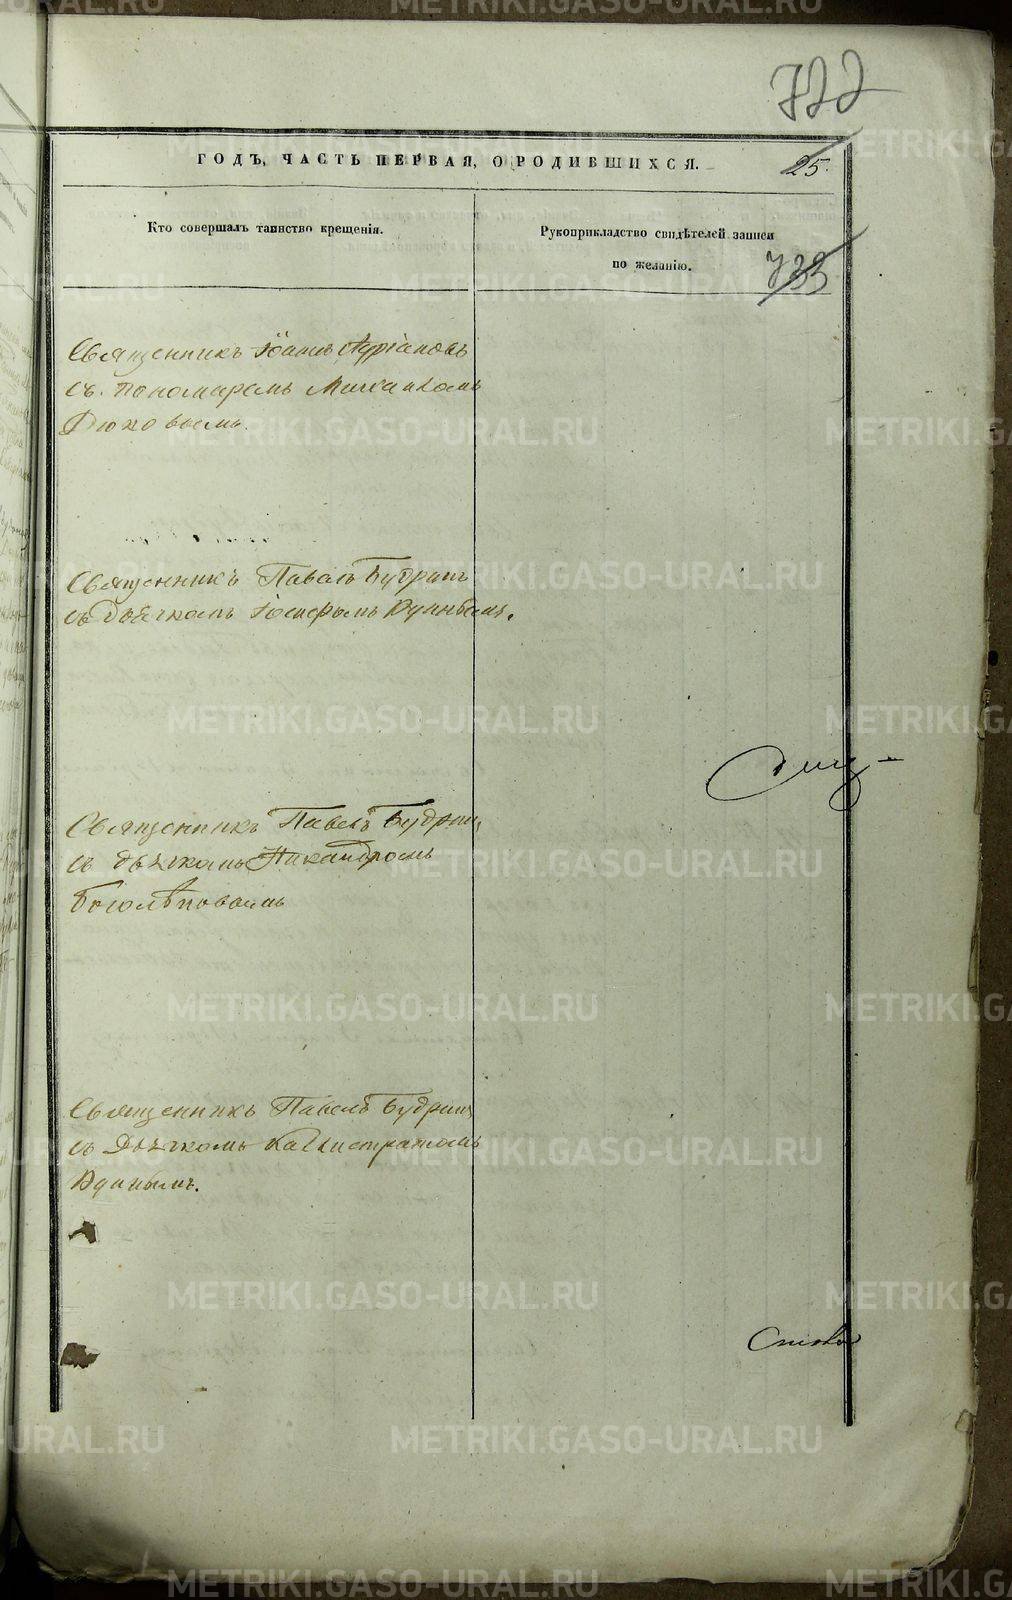 722
ГОДЪ, ЧАСТЬ ПЕРВАЯ, О РОДИВШИХСЯ.
25.
Кто совершалъ таинство крещенія.
Рукоприкладство свидѣтелей записи
по желанію.
733
Священникъ Іоаннъ Адріановъ
съ пономаремъ Михаиломъ
Священникъ Павелъ Будринъ
съ дьячкомъ Іосифомъ
Священникъ Павелъ Будринъ
съ дьячкомъ Никандромъ
Боголѣповымъ
Священникъ Павелъ Будринъ
съ Дьячкомъ Каллистратомъ
METRIKI.GASO-URAL.RU